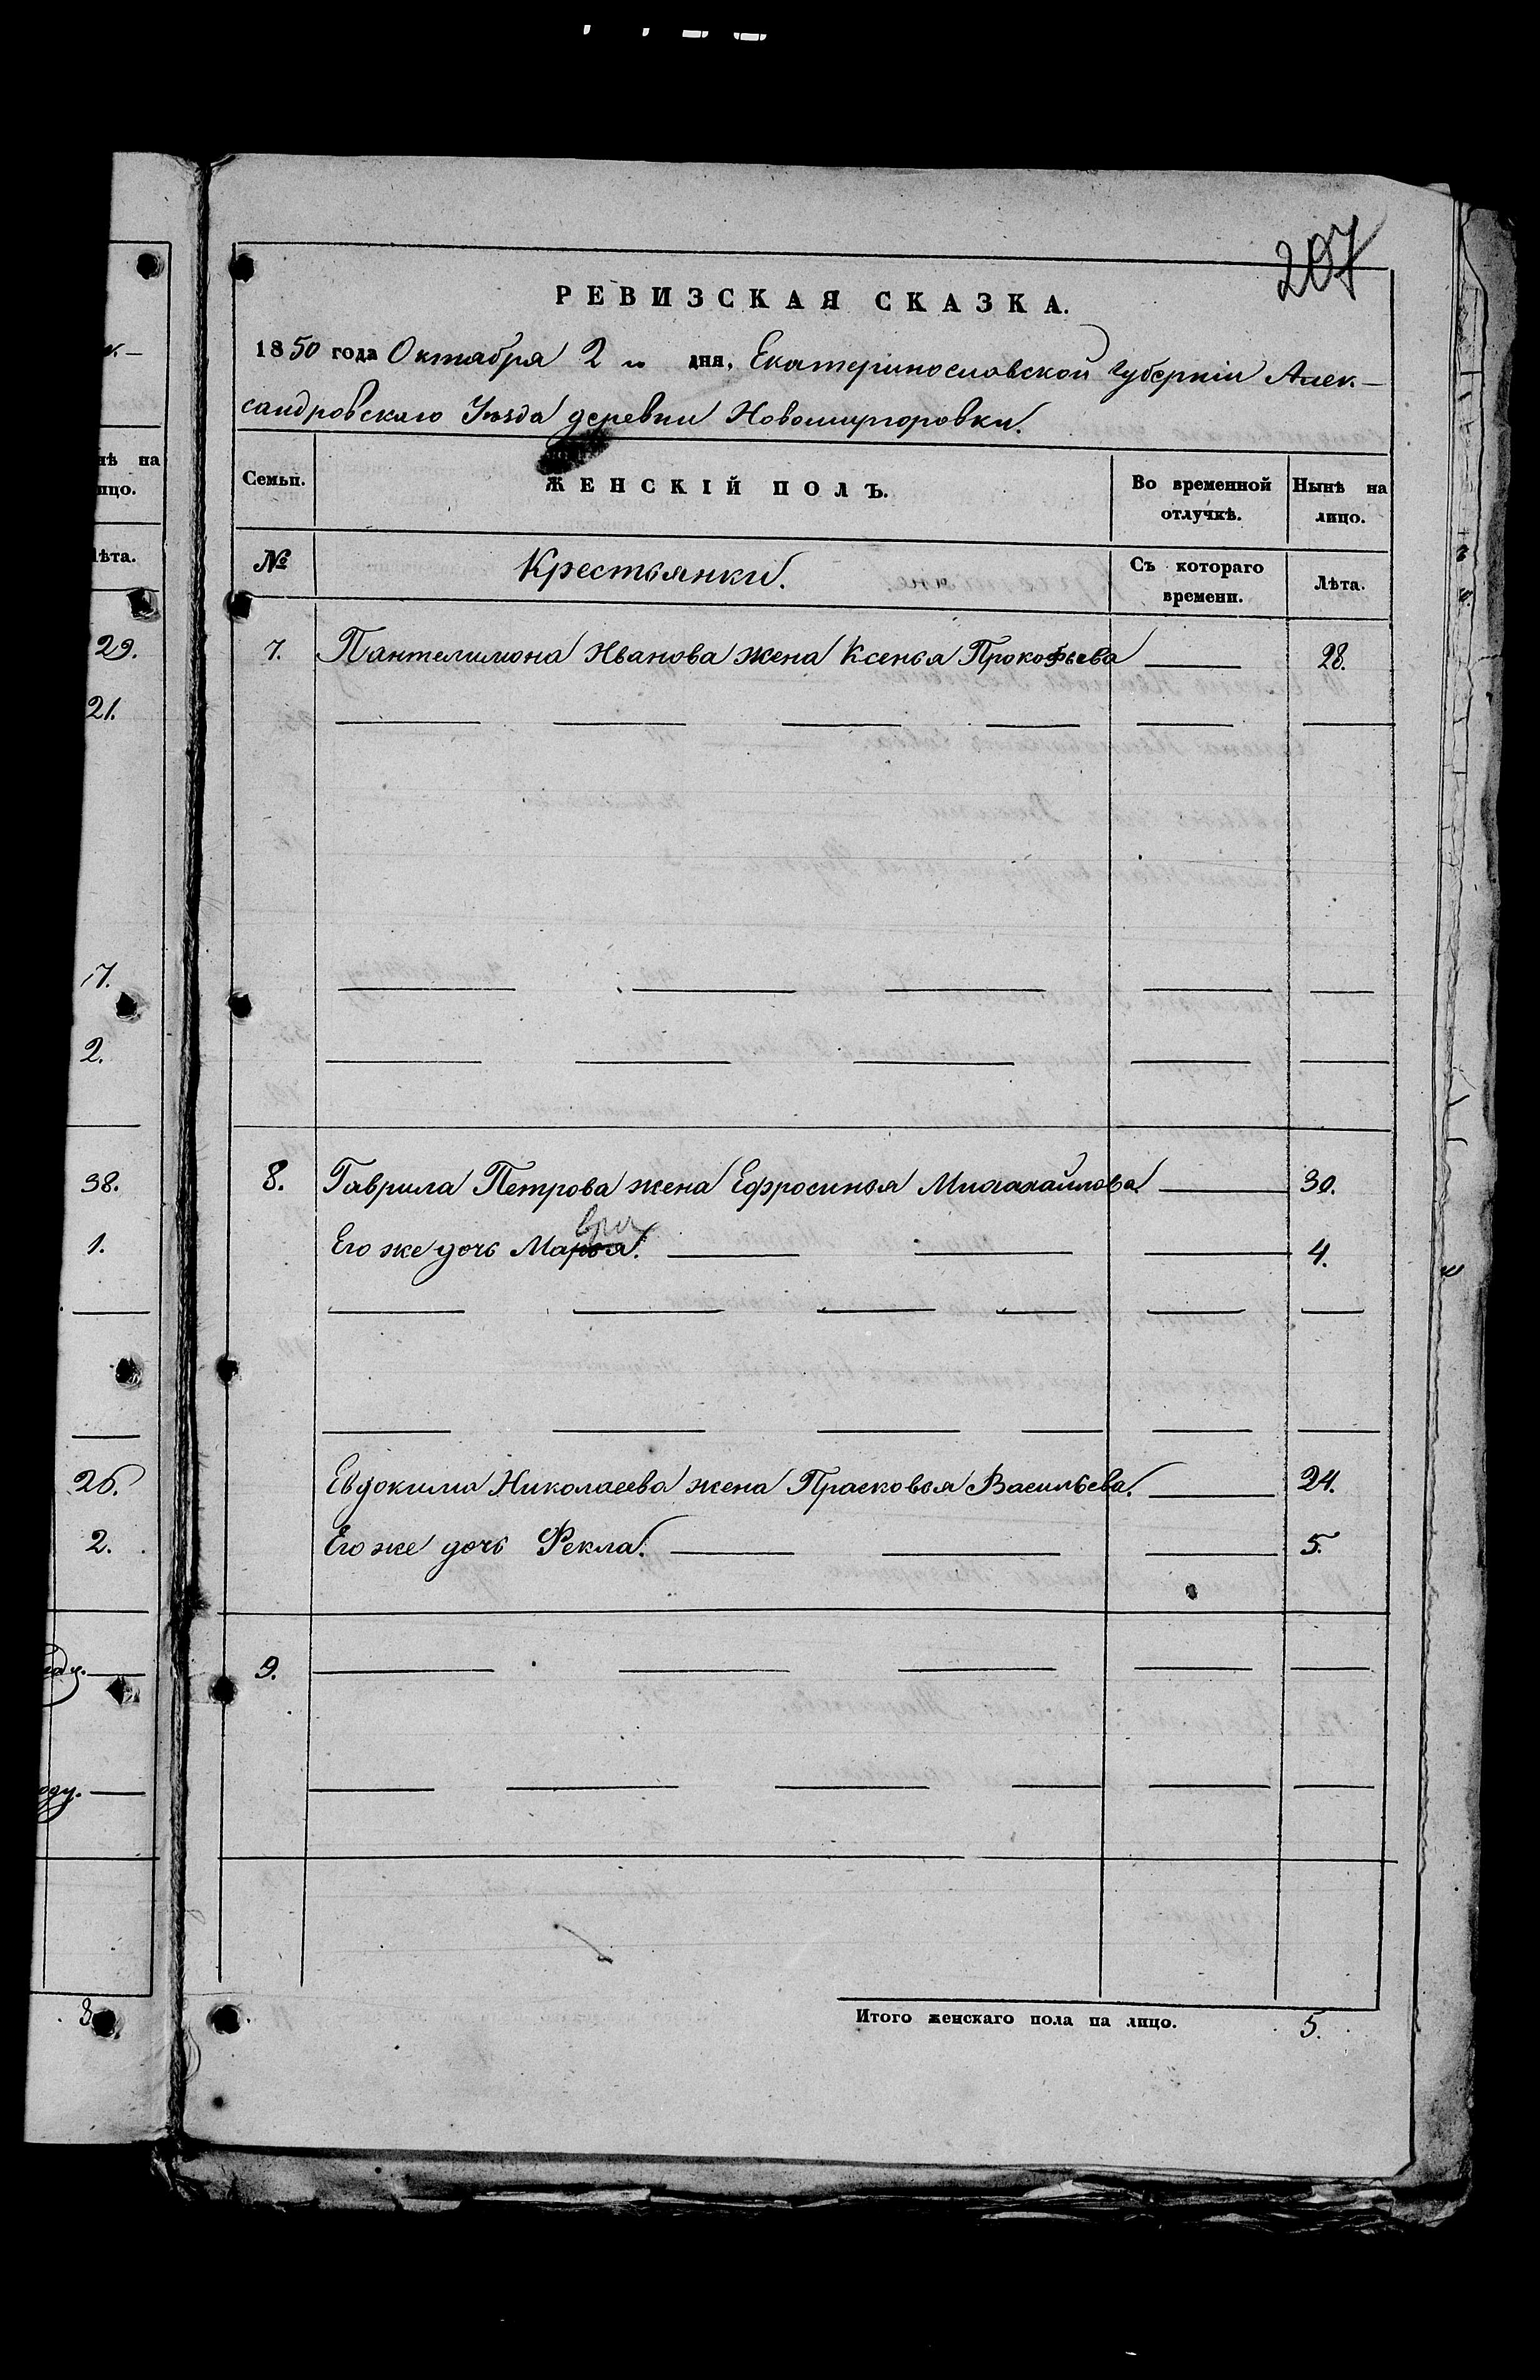 207
РЕВИЗСКАЯ СКАЗКА.
1850 года Октября 2 го дня, Екатеринославской Губерніи Алек-
сандровскаго Уѣзда деревни Новомиргоровки.
Семьи. ЖЕНСКІЙ ПОЛЪ. Во временной отлучкѣ. Нынѣ на лицо.
№ Крестьянки. Съ котораго времени. Лѣта.
7. Пантелимона Иванова жена Ксенья Прокофьева 28.
8. Гаврила Петрова жена Ефросинья Михахайлова 30.
Его же дочь Марья. 4.
Евдокима Николаева жена Прасковья Васильева. 24.
Его же дочь Фекла. 5.
9.
Итого женскаго пола на лицо. 5.
нѣ на
ицо.
лѣта.
29.
21.
17.
2.
38.
1.
26.
2.
оду.
8